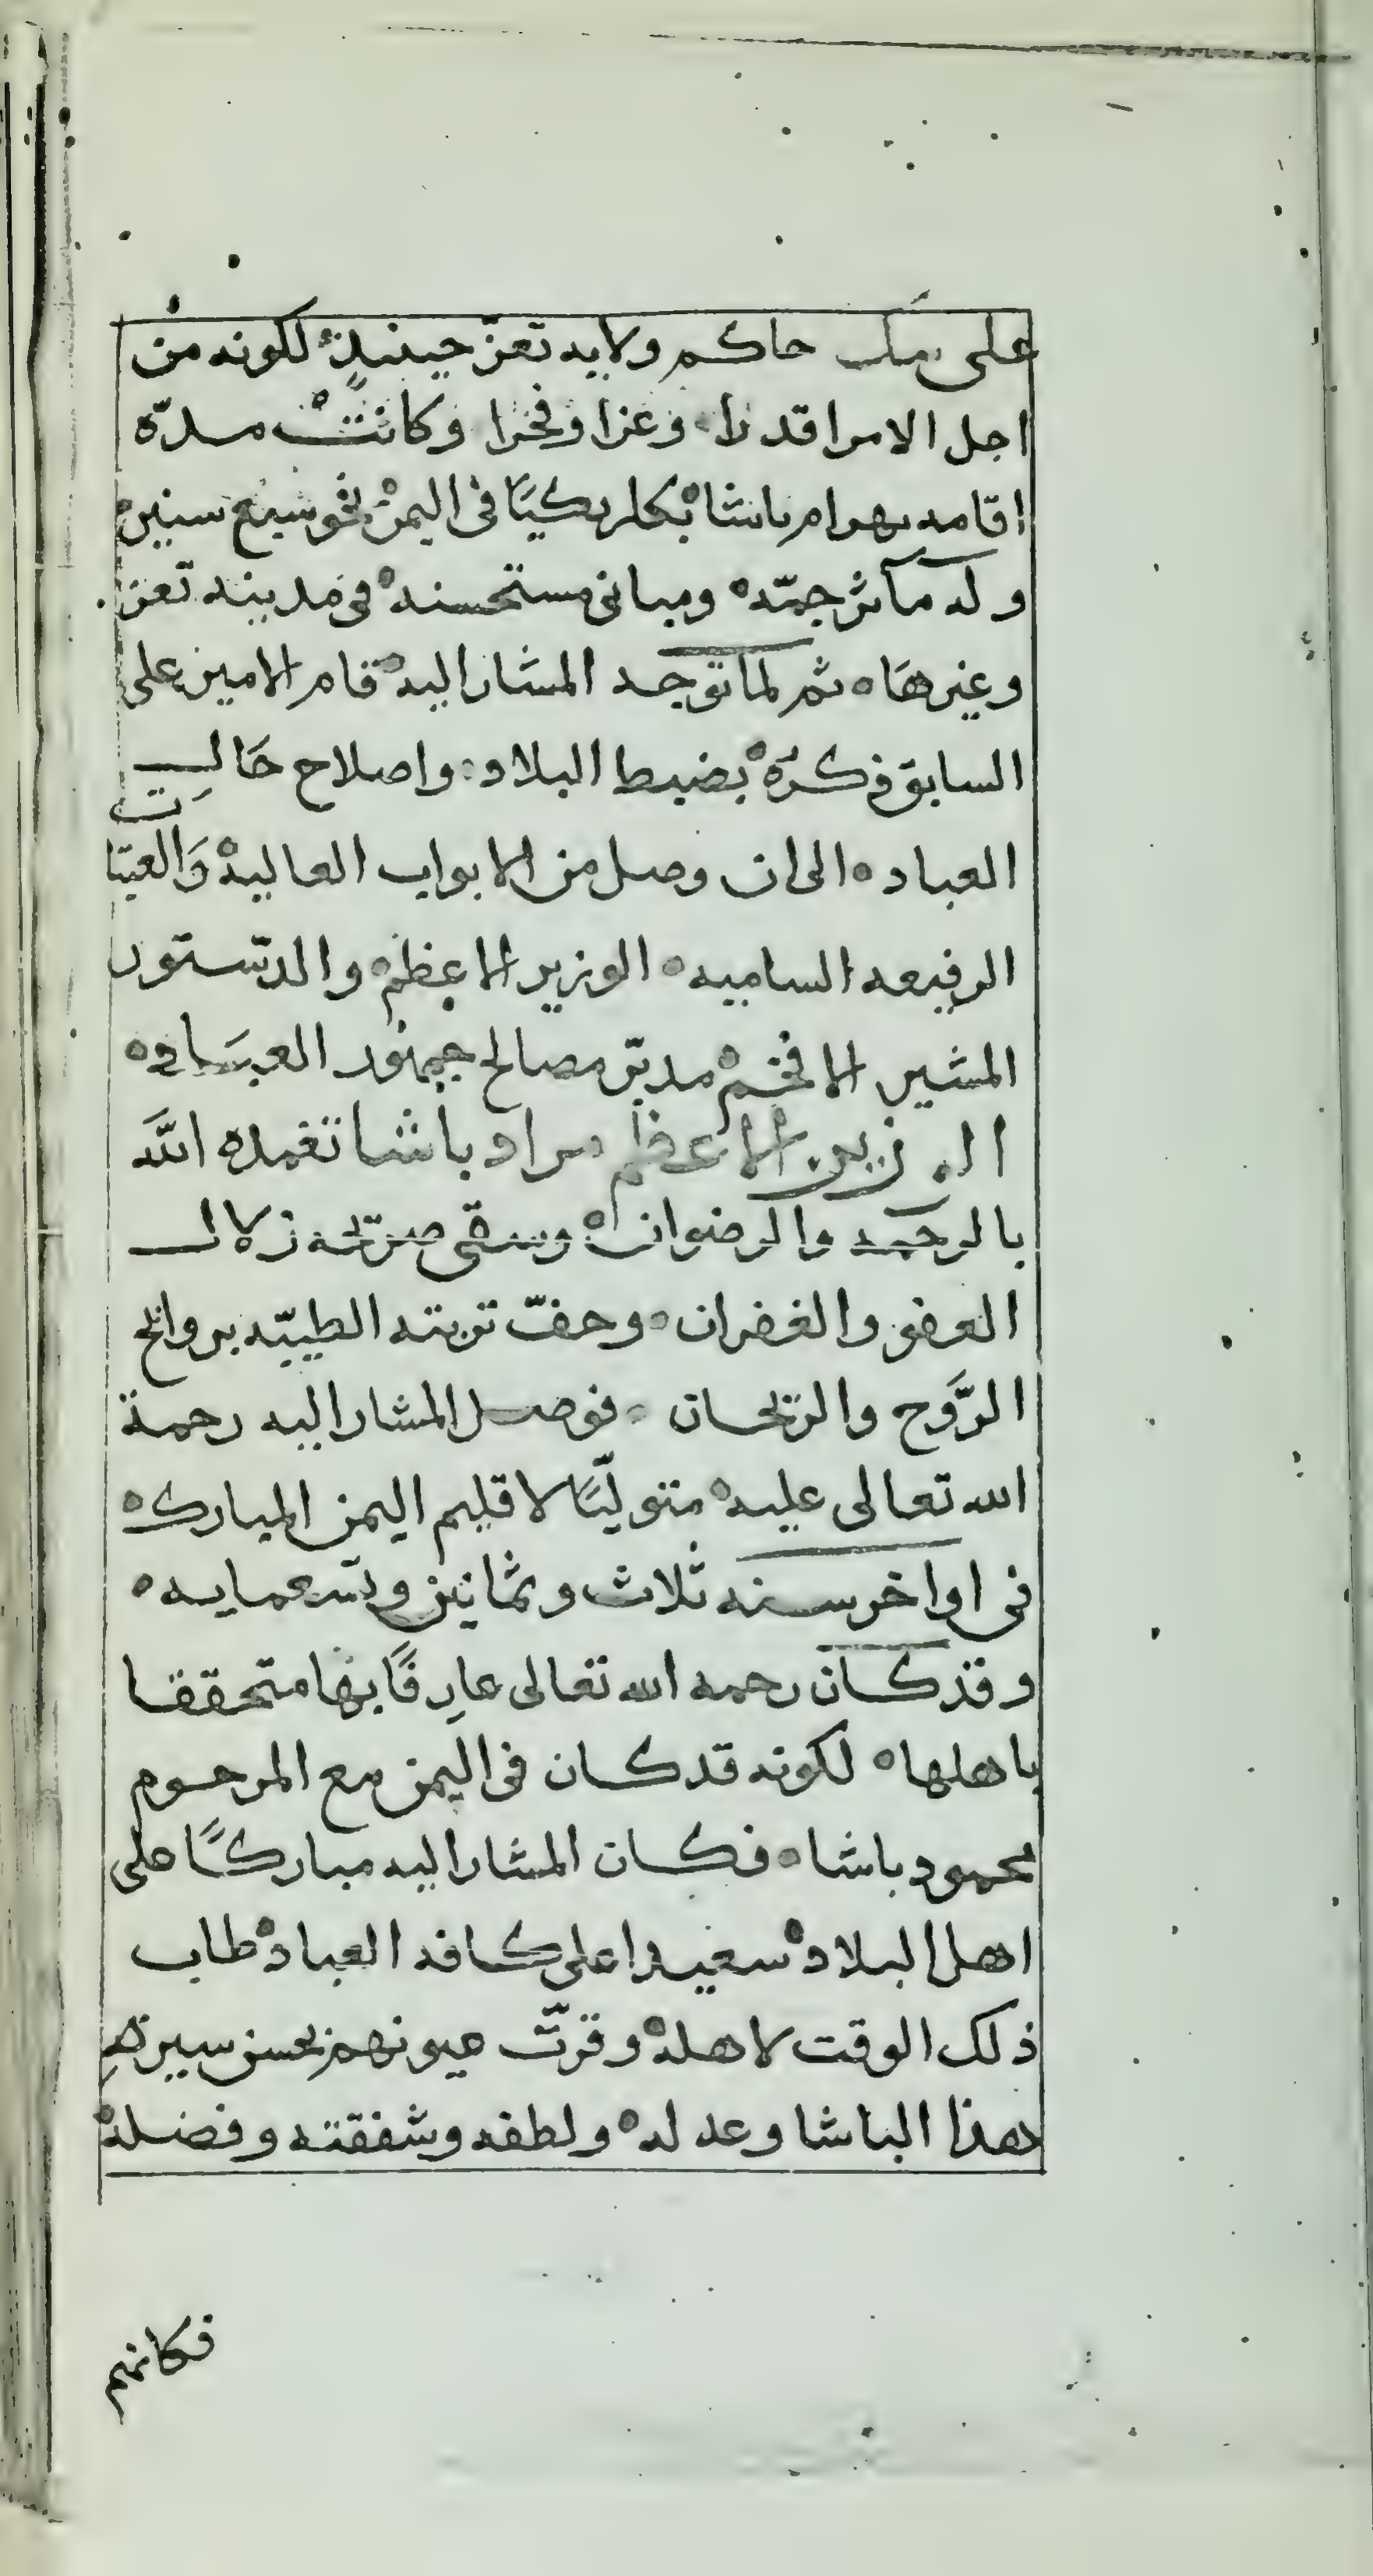 على بيك حاكم ولايه تعزّ حينئذٍ لكونه من
اجل الامرا قدرا وعزا وفخرا وكانت مدّه
اقامه بهرام باشا بكلربكيًا فى اليمن نحو سبع سنين
وله مآثر جمّه ومبانى مستحسنه فى مدينه تعز
وغيرها ثم لما توجه المشار اليه قام الامير على
السابق ذكره بضبط البلاد واصلاح حال
العباد الى ان وصل من الابواب العاليه والعتبات
الرفيعه الساميه الوزير الاعظم والدّستور
المشير الافخم مدبّر مصالح جمهور العباد
الوزير الاعظم مراد باشا تغمده الله
بالرحمه والرضوان وسقى ضريحه زلال
العفو والغفران وحفّ تربته الطيبّه بروائح
الرَّوح والريحان فوصل المشار اليه رحمة
الله تعالى عليه متوليًّا لاقليم اليمن المبارك
فى اواخر سنه ثلاث وثمانين وتسعمايه
وقد كان رحمه الله تعالى عارِفًا بها متحققا
باهلها لكونه قد كان فى اليمن مع المرحوم
محمود باشا فكان المشار اليه مباركًا على
اهل البلاد سعيدا على كافه العباد طاب
ذلك الوقت لاهله وقرتّ عيونهم بحسن سيرة
هذا الباشا وعدله ولطفه وشفقته وفضله
فكانهم